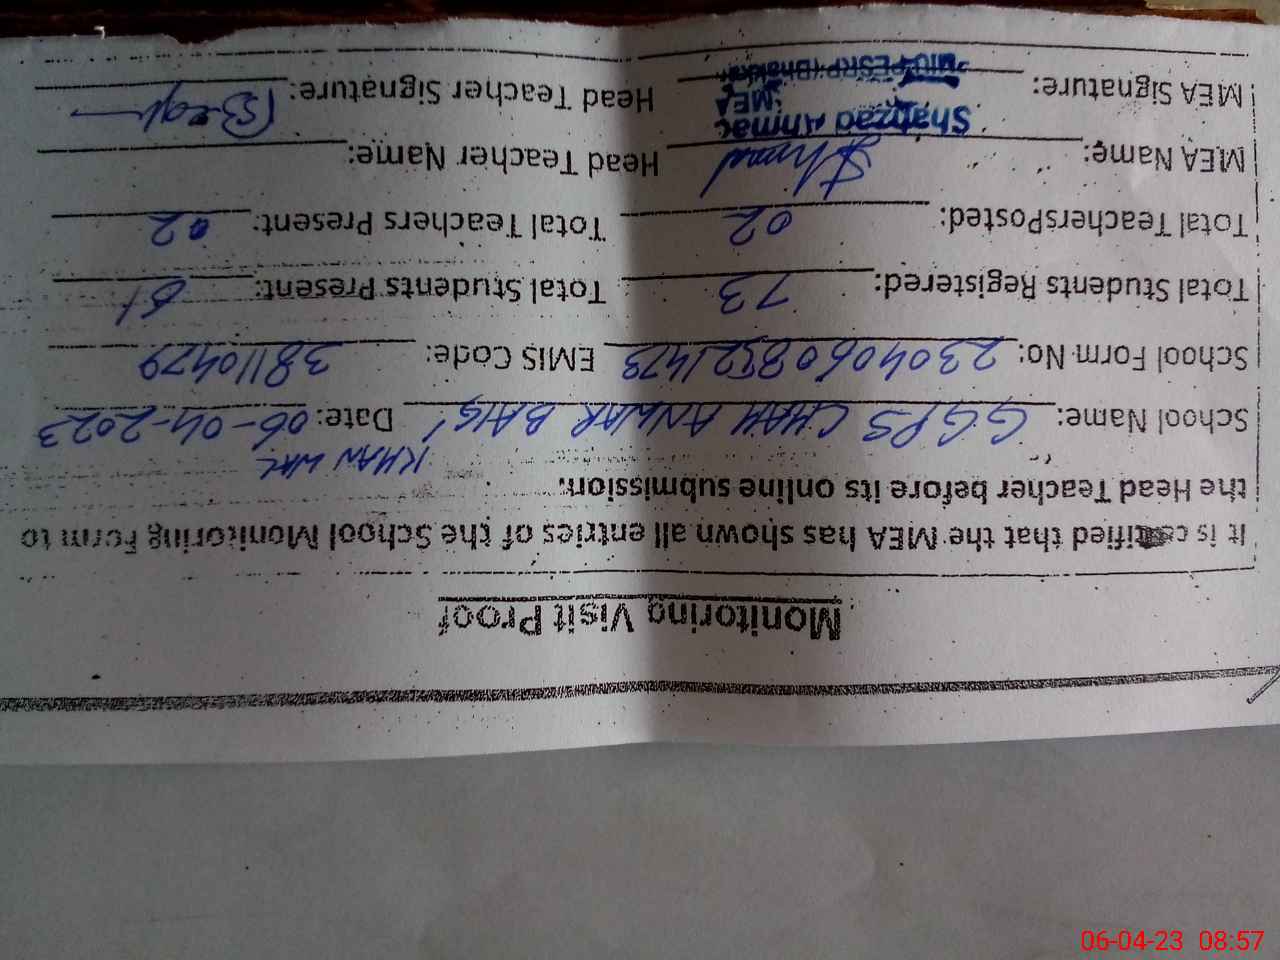 Monitoring Visit Proof
It is certified that the MEA has shown all entries of the School Monitoring Form to
the Head Teacher before its online submission.
KHAN WAL
School Name: GGPS CHAH ANWAR BAIG, Date: 06-04-2023
School Form No: EMIS Code: 38110479
Total Students Registered: 73 Total Students Present: 51
Total TeachersPosted: 02 Total Teachers Present: 02
MEA Name: Head Teacher Name:
Shahzad Ahmad
MEA
MEA Signature: PESRP (Bhakkar Head Teacher Signature:
06-04-23 08:57